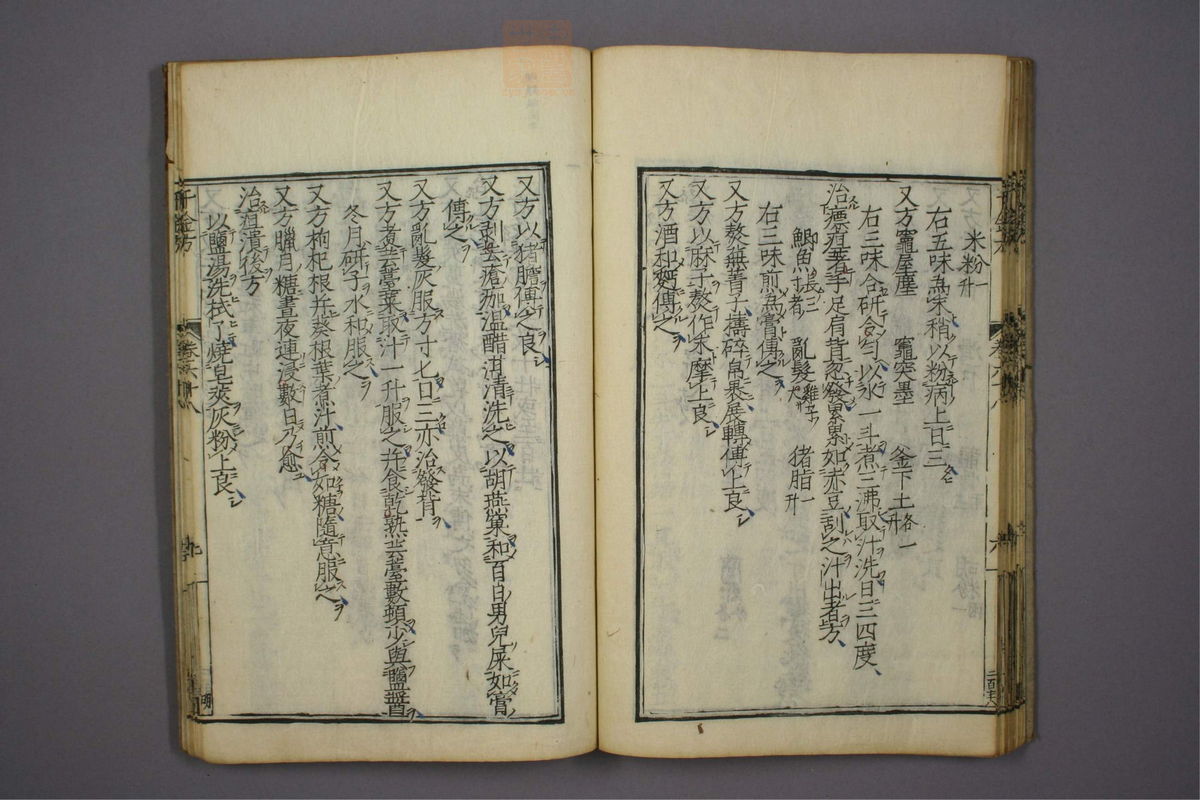 米粉一升
右五味爲末稍以粉病上日三
又方竈屋塵 竈突墨 釜下土各一升
右三味合研令勻以水一斗煮三沸取汁洗日三四度
治瘭疽著手足肩背忽發累累如赤豆刮之汁出者方
鯽魚長三寸者 亂髮雞子大 猪脂一升
右三味煎爲膏傅之
又方熬蕪菁子擣碎帛裹展轉傅上良
又方以麻子熬作末摩上良
又方酒和麪傅之
又方以猪膽傅之良
又方剥去瘡痂溫醋泔清洗之以胡燕窠和百日男兒屎如膏
傅之
又方亂髮灰服方寸匕日三亦治發背
又方煮芸薹葉取汁一升服之并食乾熟芸薹數頓少與鹽醬
冬月研子水和服之
又方枸杞根并葵根葉煮汁煎令如糖隨意服之
又方臘月糖晝夜連浸數日乃愈
治疽潰後方
以鹽湯洗拭了燒皂莢灰粉上良
千金方